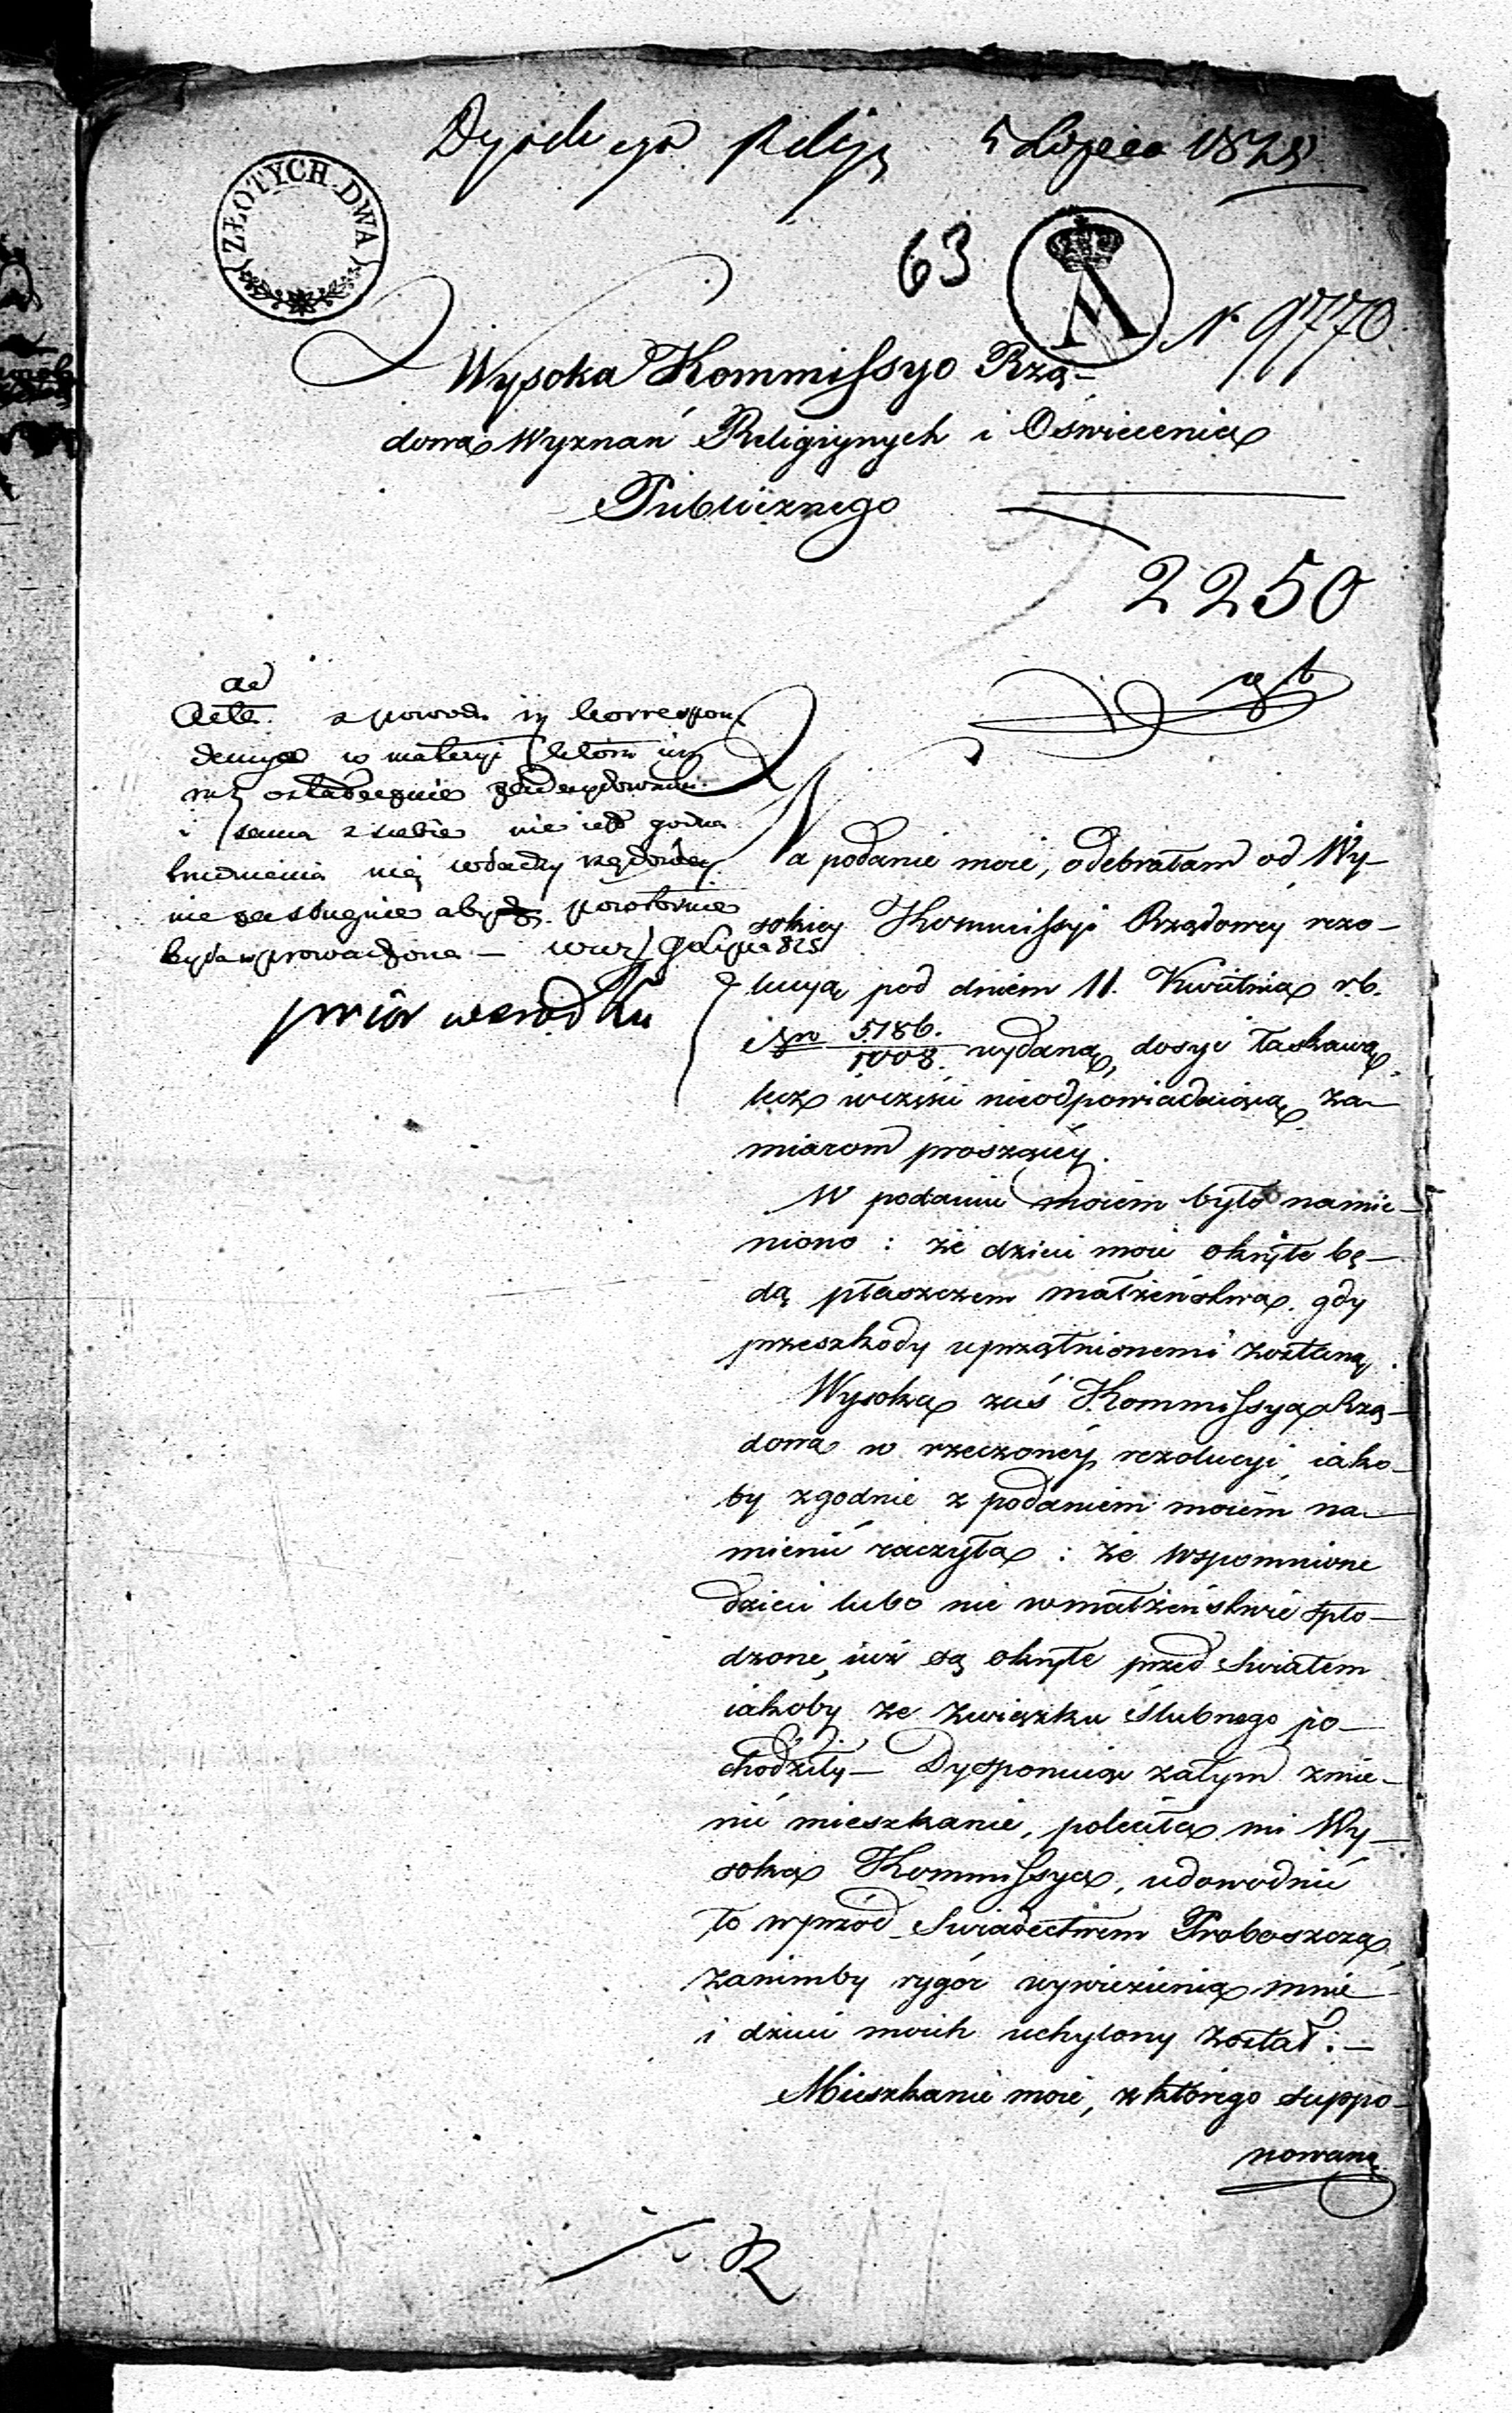 5 Lipca 1825
ZŁOTYCH DWA
63
A
N. 9770
Wysoka Kommissyo Rzą-
dowa Wyznań Religiynych i Oświecenia
Publicznego
2250
ad
Acta. z powodu iż korrespon
dencya w materyi która iuż
ostatecznie zadecydowana
i sama z siebie nie iest godna
trudnienia nią władzy rządowey
nie zasługuie aby powtórnie
była prowadzona —
Na podanie moie, odebrałam od Wy-
sokiey Kommissyi Rządowey rezo-
lucyą pod dniem 11. Kwietnia r.b.
Nro 5186./1008. wydaną, dosyć łaskawą,
lecz w części nieodpowiadaiącą za-
miarom proszącéy.
W podaniu moiem było namie-
niono : że dzieci moie okryte bę-
dą płaszczem małżeństwa, gdy
przeszkody uprzątnionemi zostaną.
Wysoka zaś Kommissya Rzą-
dowa w rzeczonéy rezolucyi, iako-
by zgodnie z podaniem moiem na-
mienić raczyła : że wspomnione
dzieci lubo nie w małżeństwie spło-
dzone, iuż są okryte przed Swiatem
iakoby ze związku ślubnego po-
chodziły — Dysponuiąc zatym zmie-
nić mieszkanie, poleciła mi Wy-
soka Kommissya, udowodnić
to wprzód Swiadectwem Proboszcza,
zanimby rygor wywiezienia mnie
i dzieci moich uchylony został : —
Mieszkanie moie, z którego suppo-
nowaną